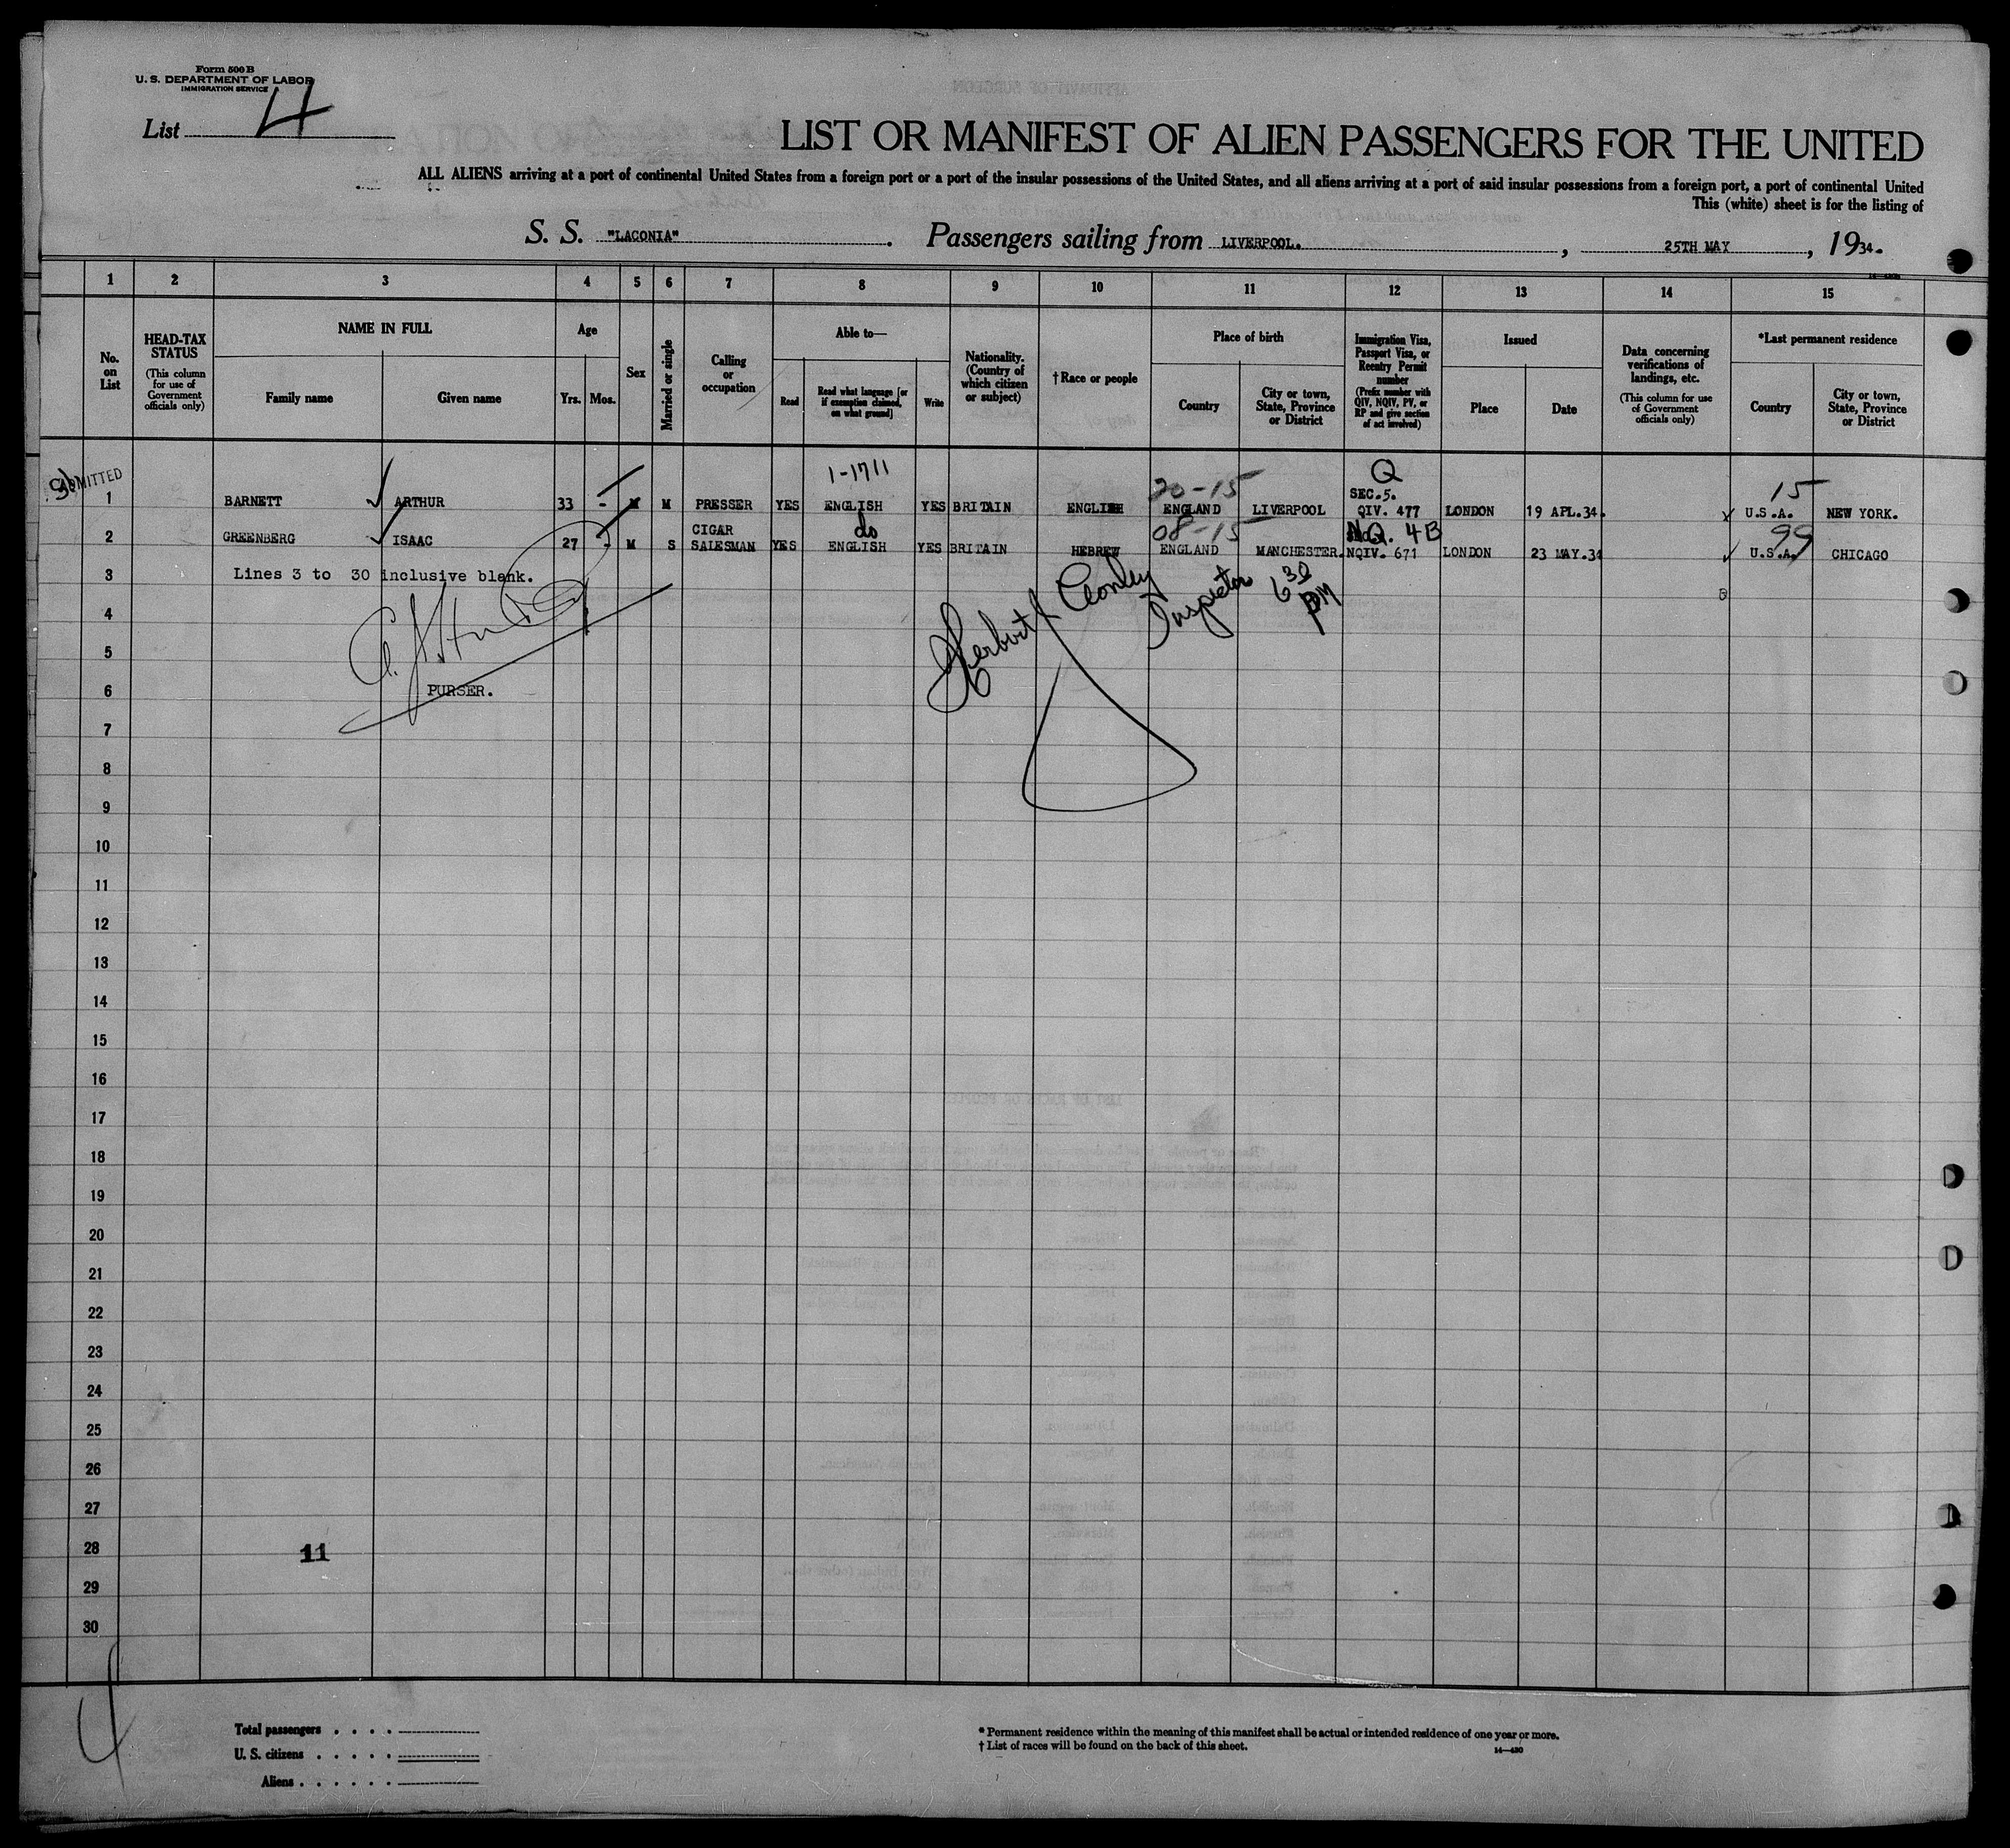 Form 500 B
U. S. DEPARTMENT OF LABOR
IMMIGRATION SERVICE
List 4
LIST OR MANIFEST OF ALIEN PASSENGERS FOR THE UNITED
ALL ALIENS arriving at a port of continental United States from a foreign port or a port of the insular possessions of the United States, and all aliens arriving at a port of said insular possessions from a foreign port, a port of continental United
This (white) sheet is for the listing of
S. S. "LACONIA". Passengers sailing from LIVERPOOL., 25TH MAY, 1934.
1 2 3 4 5 6 7 8 9 10 11 12 13 14 15
No. on List
HEAD-TAX STATUS (This column for use of Government officials only)
NAME IN FULL
Family name
Given name
Age
Yrs. Mos.
Sex
Married or single
Calling or occupation
Able to—
Read
Read what language [or if exemption claimed, on what ground]
Write
Nationality. (Country of which citizen or subject)
† Race or people
Place of birth
Country
City or town, State, Province or District
Immigration Visa, Passport Visa, or Reentry Permit number (Prefix number with QIV, NQIV, PV, or RP and give section of act involved)
Issued
Place
Date
Data concerning verifications of landings, etc. (This column for use of Government officials only)
*Last permanent residence
Country
City or town, State, Province or District
ADMITTED
1-1711
20-15
Q
SEC.5.
15
1 BARNETT ARTHUR 33 - M M PRESSER YES ENGLISH YES BRITAIN ENGLISH ENGLAND LIVERPOOL QIV. 477 LONDON 19 APL.34. U.S.A. NEW YORK.
do
08-15
N.Q. 4B
99
2 GREENBERG ISAAC 27 - M S CIGAR SALESMAN YES ENGLISH YES BRITAIN HEBREW ENGLAND MANCHESTER. NQIV. 671 LONDON 23 MAY.34 U.S.A. CHICAGO
3 Lines 3 to 30 inclusive blank.
Herbert Conley Inspector 6 30 PM
4
5
6 PURSER.
7
8
9
10
11
12
13
14
15
16
17
18
19
20
21
22
23
24
25
26
27
28 11
29
30
Total passengers . . . .
U. S. citizens . . . . .
Aliens . . . . . .
* Permanent residence within the meaning of this manifest shall be actual or intended residence of one year or more.
† List of races will be found on the back of this sheet.
14—430